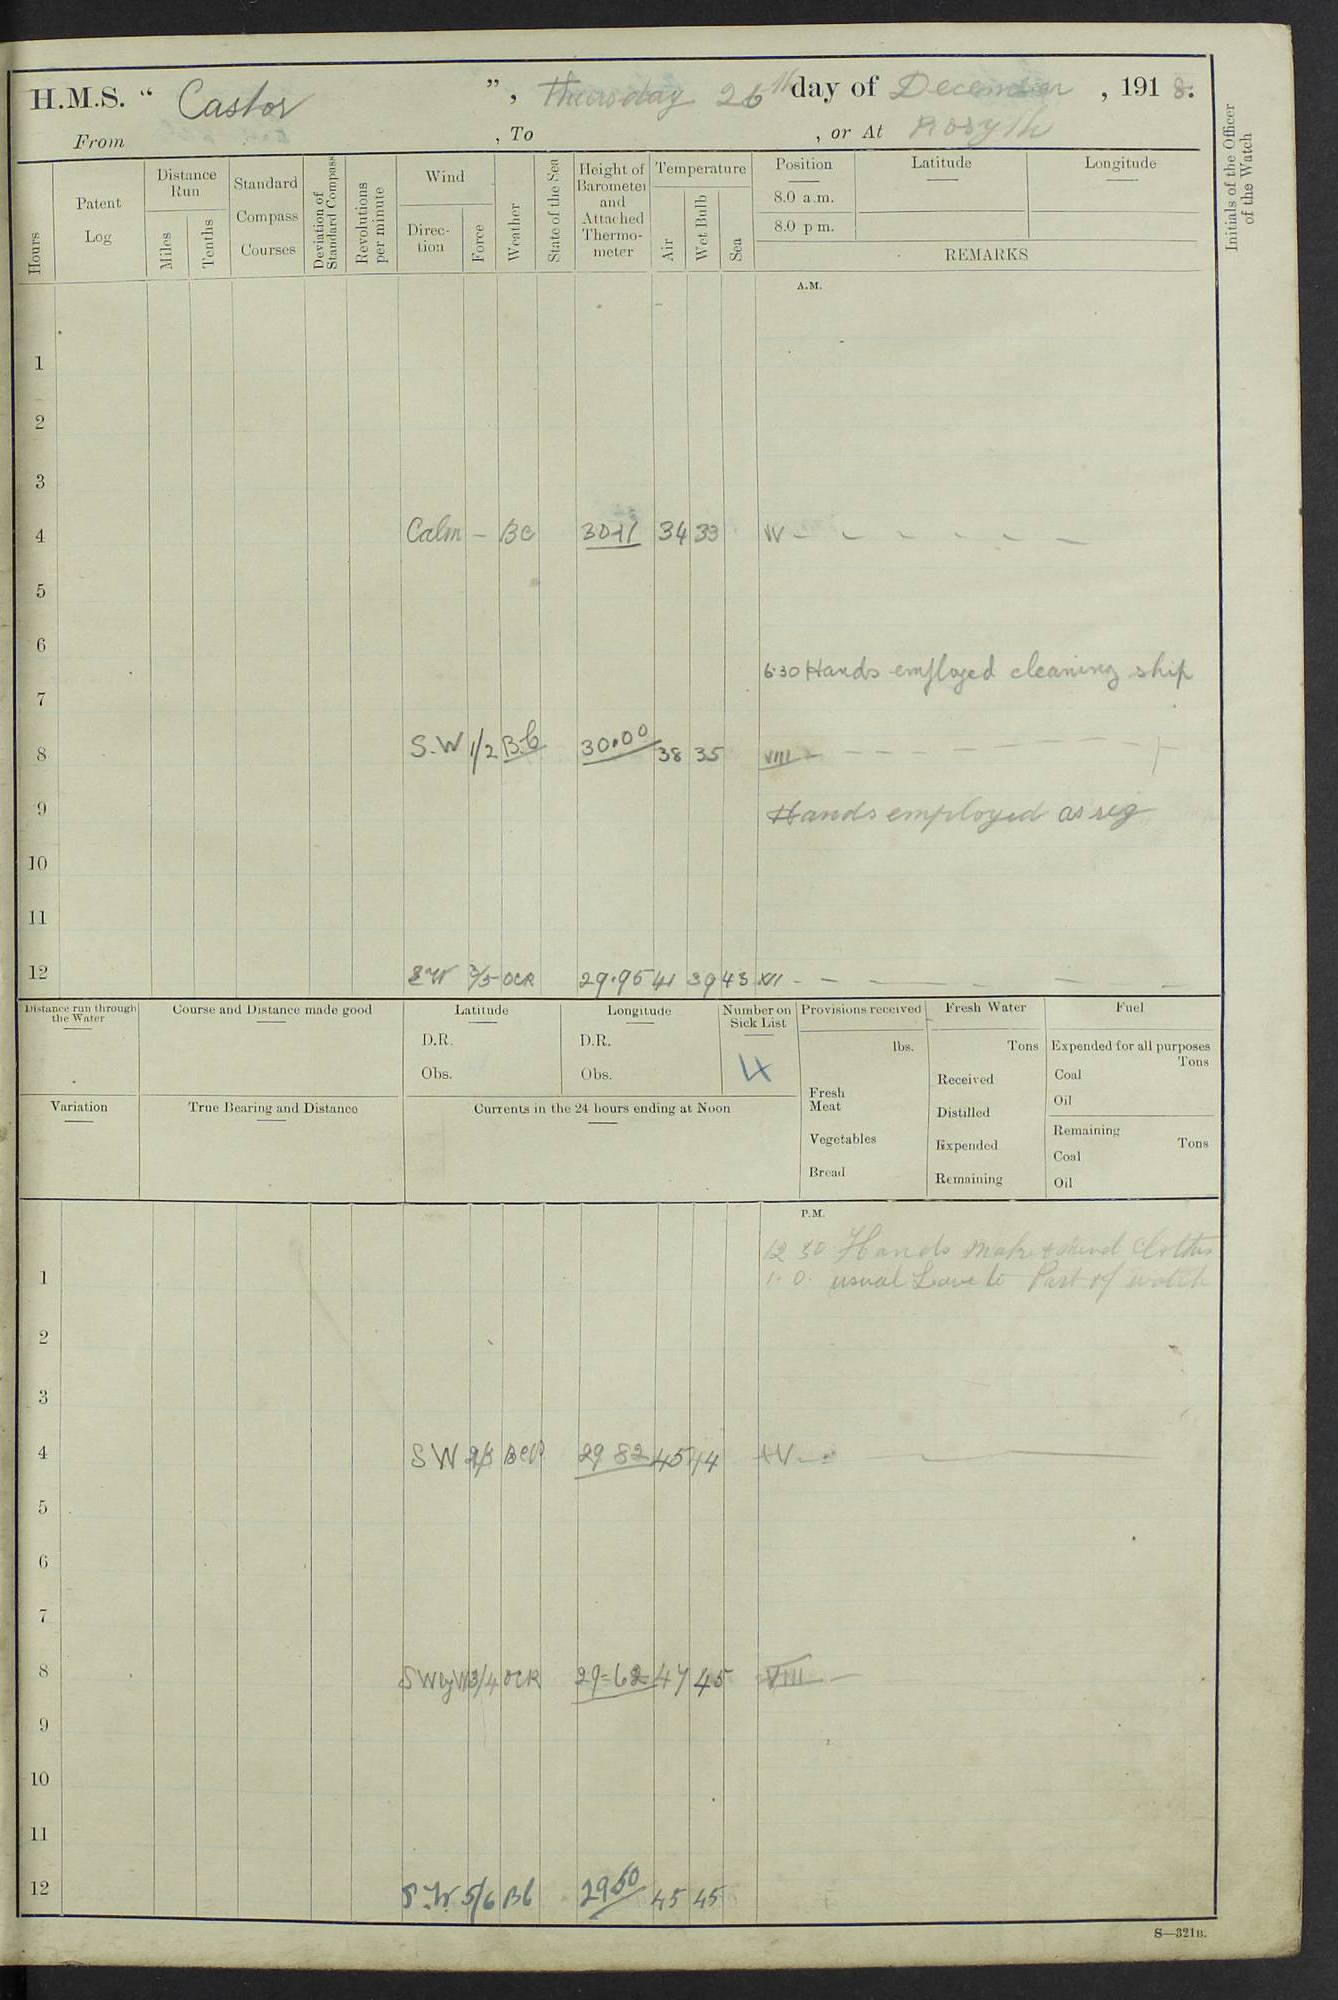 H.M.S. “ Castor ”, Thursday 26th day of December , 1918.
From , To , or At Rosyth
Initials of the Officer of the Watch
Hours
Patent Log
Distance Run
Miles
Tenths
Standard Compass Courses
Deviation of Standard Compass
Revolutions per minute
Wind
Direc- tion
Force
Weather
State of the Sea
Height of Barometer and Attached Thermo- meter
Temperature
Air
Wet Bulb
Sea
Position
8.0 a.m.
8.0 p m.
Latitude
Longitude
REMARKS
A.M.
1
2
3
4 Calm – BC 30.11 34 33 IV – – – – – –
5
6
6.30 Hands employed cleaning ship
7
8 S.W 1/2 B.C 30.00 38 35 VIII – – – – – –
9 Hands employed as req
10
11
12 SW 3/5 OCR 29.95 41 39 43 XII – – – – – – –
Distance run through the Water
Course and Distance made good
Latitude
D.R.
Obs.
Longitude
D.R.
Obs.
Number on Sick List
4
Provisions received
lbs.
Fresh Meat
Vegetables
Bread
Fresh Water
Tons
Received
Distilled
Expended
Remaining
Fuel
Expended for all purposes
Tons
Coal
Oil
Remaining
Tons
Coal
Oil
Variation
True Bearing and Distance
Currents in the 24 hours ending at Noon
P.M.
12 30 Hands make & mend Clothes
1 1. 0. usual Leave to Part of watch
2
3
4 SW 29 82 45
5
6
7
8 SWbyW 3/4 OCR 29.62 47 45 VIII –
9
10
11
12 S.W. 5/6 BC 29.50 45 45
S—321B.